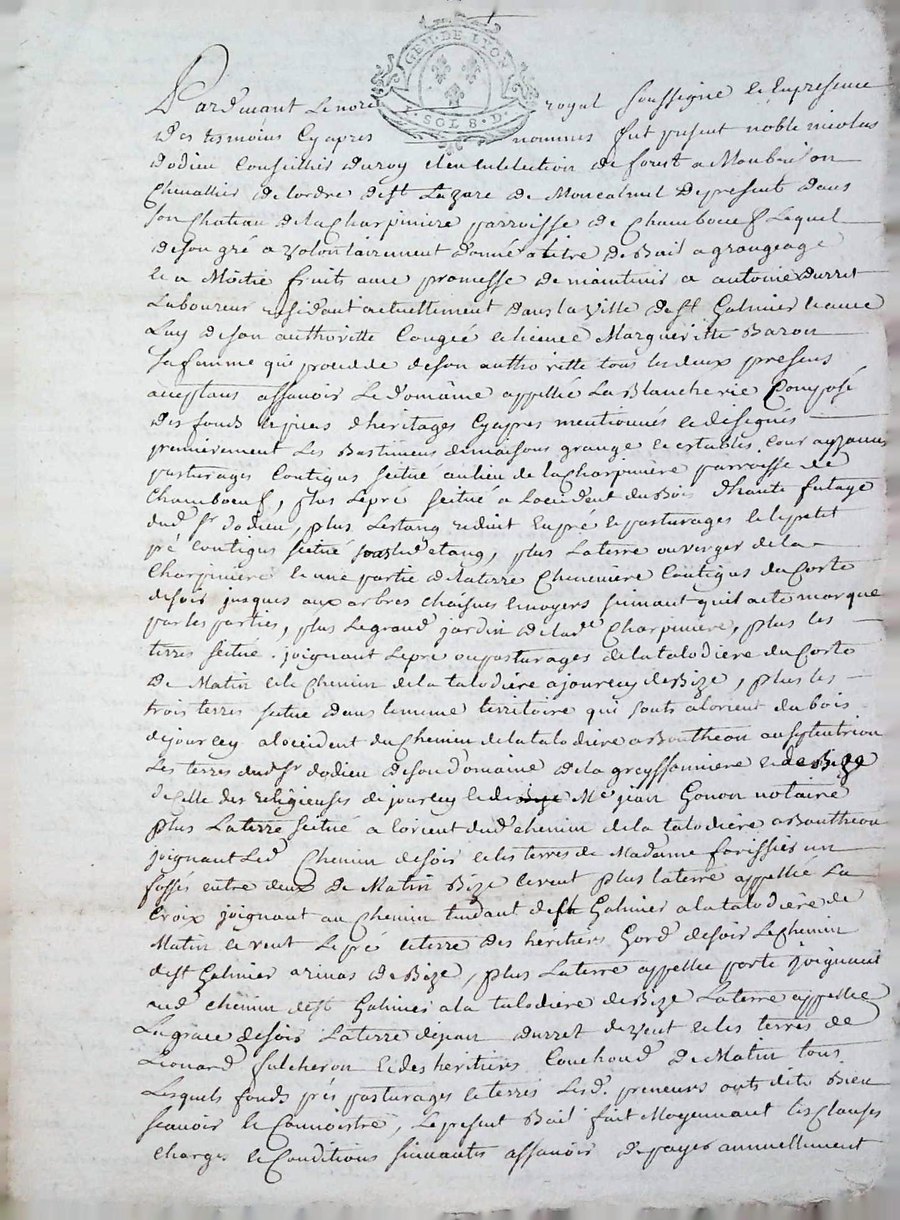 GEN. DE LYON
SOL 8. D.
Pardevant Le nore royal soussigné et En presence
Des temoins Cyapres nommes fut present noble nicolas
Dodieu Conseiller du roy en Lelection de forest a Montbrison
Chevallier de Lordre de st Lazare de Moncalmel De present dans
son Chateau de la Charpiniere parroisse de Chambœuf Lequel
de son gré a volontairement donné a titre de Bail a grangeage
et a Moitié fruits avec promesse de maintenir a antoine Durret
Laboureur residant actuellement dans la ville de st Galmier et avec
Luy de son authoritte Congée et licence Marguerite Baron
sa femme qui procedde de son authoritte tous les deux presens
acceptans assavoir Le domâine appellée La Blancherie Composé
Des fonds et pieces d'heritages Cyapres mentionnés et designés
premierement Les Bastimens de maisons grange et estables, Cour aysances
pasturages Contigus scitué au lieu de la Charpiniere parroisse de
Chambœuf, plus Le pré scitué a Locident du Bois d'haute futaye
dud. sr. dodieu, plus Lestang reduit En pré et pasturages et le petit
pré Contigus scitué sous led. etang, plus La terre ou verger de la
Charpiniere et une partie de la terre Cheneviere Contigus du Coste
de soir jusques aux arbres chaisnes et noyers suivant qu'il a ete marque
par les parties, plus Le grand jardin de lad. Charpiniere, plus les
terres scitué joignant Le pré ou pasturages de la talodiere du Costé
De Matin et le Chemin de la talodiere a jourcey de Bize, plus les
trois terres scitué dans le meme territoire qui sonts a lorient du bois
de jourcey a locident du Chemin de la talodiere a Boutheon au septentrion
Les terres dud. sr dodieu de son domaine de la greyssonniere et de Bize
de Celle des religieuses de jourcey et de Me jean Gonon notaire
plus La terre scitué a lorient dud. chemin de la talodiere a Boutheon
joignant Led. Chemin de soir et les terres de Madame forissier un
fossés entre deux de Matin Bize et vent plus la terre appellée La
Croix joignant au Chemin tendant de st Galmier a la talodiere de
Matin et vent Le pré et terre des heritiers Gord de soir Le Chemin
de st Galmier a rivas de Bize, plus La terre appellée porte joignant
aud. chemin de st Galmier a la talodiere de Bize La terre appellée
La grace de soir La terre de jean durret de vent et les terres de
Leonard fulcheron et des heritiers Couchoud De Matin tous
Lesquels fonds prés pasturages et terres Lesd. preneurs onts dits Bien
scavoir et Connoistre, Le present Bail fait Moyennant Les Clauses
charges et Conditions suivantes assavoir de payer annuellement